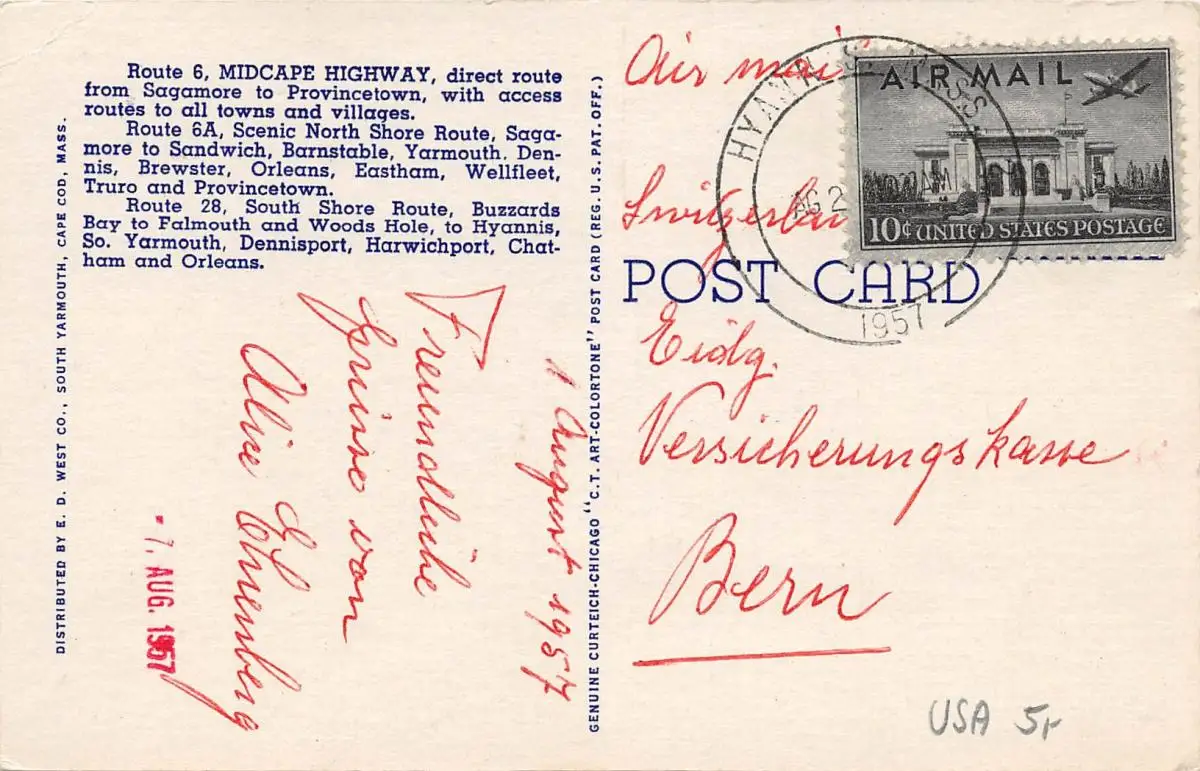 Route 6, MIDCAPE HIGHWAY, direct route
from Sagamore to Provincetown, with access
routes to all towns and villages.
Route 6A, Scenic North Shore Route, Saga-
more to Sandwich, Barnstable, Yarmouth, Den-
nis, Brewster, Orleans, Eastham, Wellfleet,
Truro and Provincetown.
Route 28, South Shore Route, Buzzards
Bay to Falmouth and Woods Hole, to Hyannis,
So. Yarmouth, Dennisport, Harwichport, Chat-
ham and Orleans.
DISTRIBUTED BY E. D. WEST CO., SOUTH YARMOUTH, CAPE COD, MASS.
GENUINE CURTEICH-CHICAGO "C.T. ART-COLORTONE" POST CARD (REG. U.S. PAT. OFF.)
1 August 1957
Freundliche
Grüsse von
Alice
- 7. AUG. 1957
Air mail
AIR MAIL
10¢ UNITED STATES POSTAGE
HYANNIS, MASS.
AG 2
AM
1957
POST CARD
Eidg.
Versicherungskasse
Bern
USA 5,-